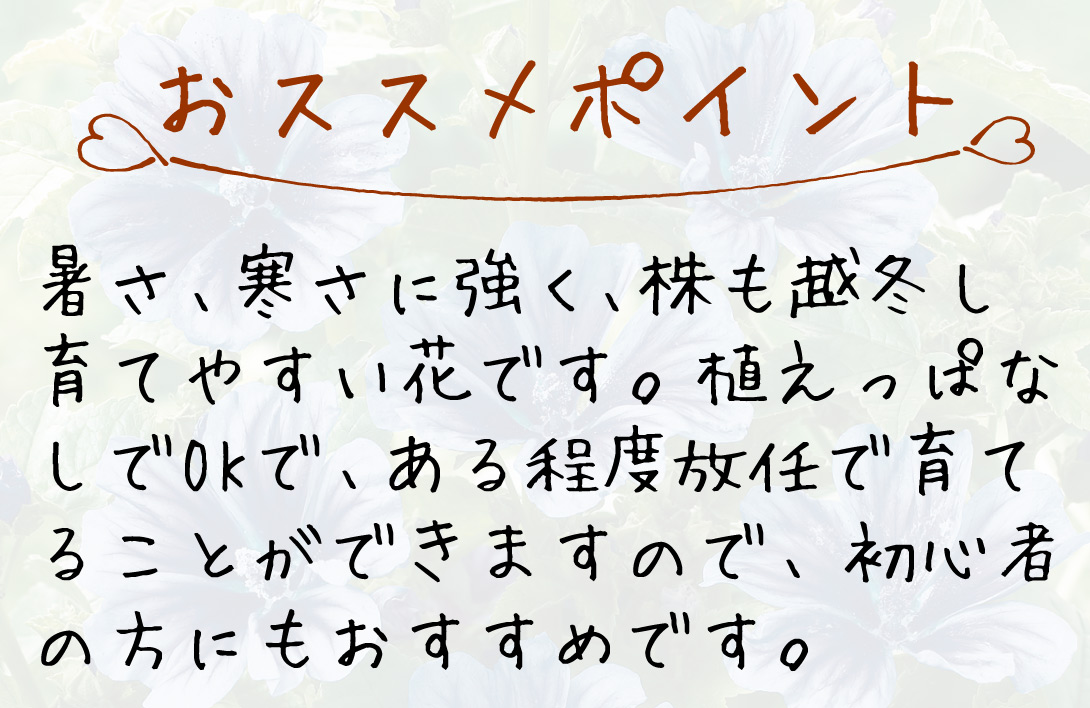 おススメポイント
暑さ、寒さに強く、株も越冬し
育てやすい花です。植えっぱな
しでOkで、ある程度放任で育て
ることができますので、初心者
の方にもおすすめです。